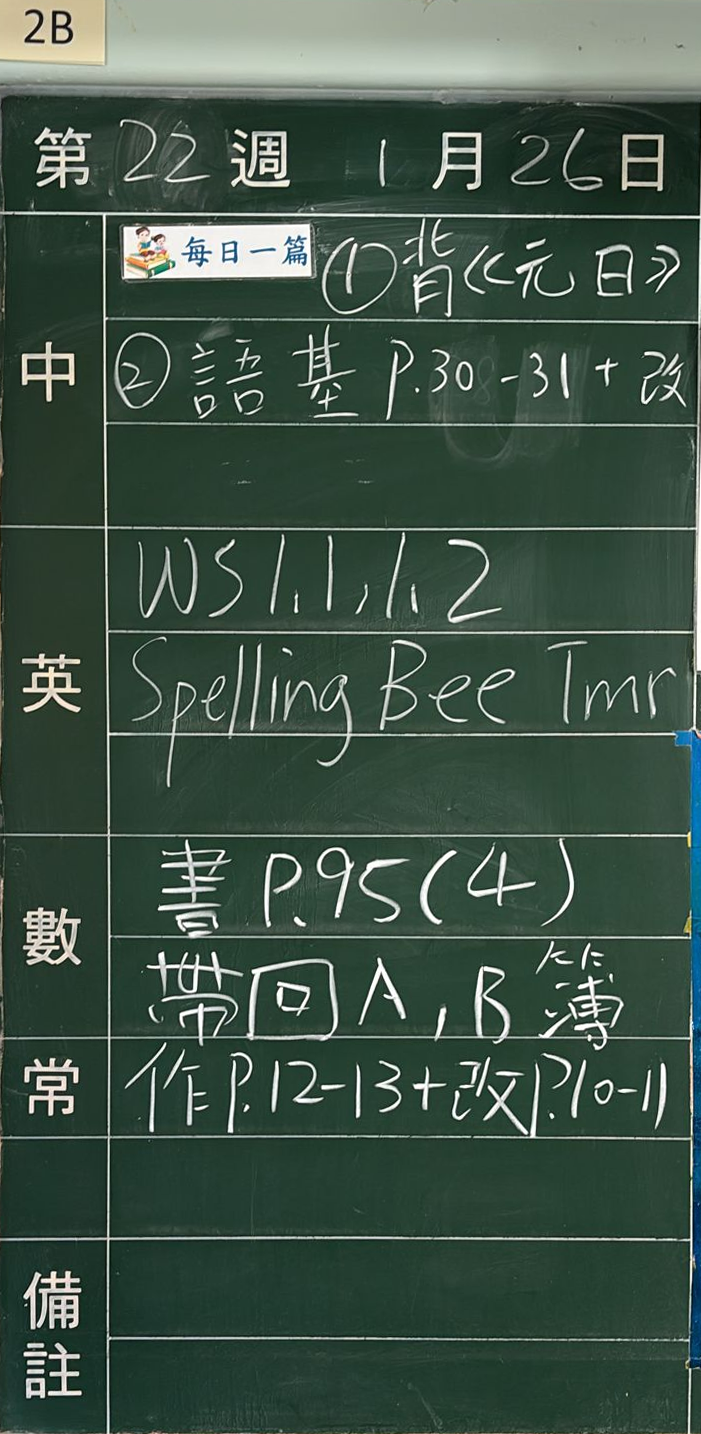 2B
第22週 1月26日
中
每日一篇 ①背《元日》
②語基 P.30-31+改
英
WS 1.1, 1.2
Spelling Bee Tmr
數
書 P.95(4)
帶回A,B簿
常
作P.12-13+改P.10-11
備註